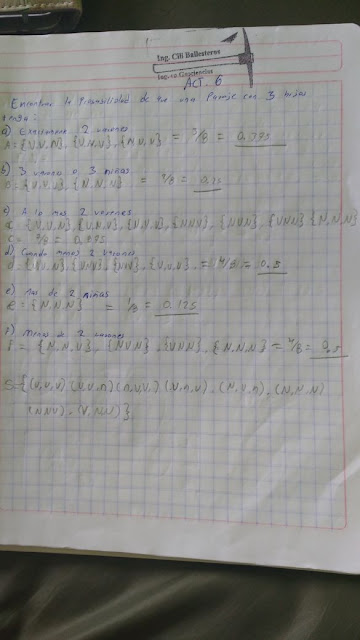 Ing. Cilí Ballesteros
Ing. en Geociencias
ACT. 6
Encontrar la probabilidad de que una pareja con 3 hijos
tenga:
a) Exactamente 2 varones
A = {V,V,N}, {V,N,V}, {N,V,V} = 3/8 = 0.375
b) 3 varones o 3 niñas
{V,V,V}, {N,N,N} = 2/8 =
c) A lo mas 2 varones
C = 7/8 = 0.875
d) Cuando menos 2 varones
= 4/8 = 0.5
e) Mas de 2 niñas
E = {N,N,N} = 1/8 = 0.125
f) Menos de 2 varones
F = {N,N,V}, {N,V,N}, {V,N,N}, {N,N,N} = 4/8 = 0.5
S = {(V,V,V) (V,V,N) (N,V,V), (V,N,V), (N,V,N), (N,N,N)
(N,N,V), (V,N,N)}